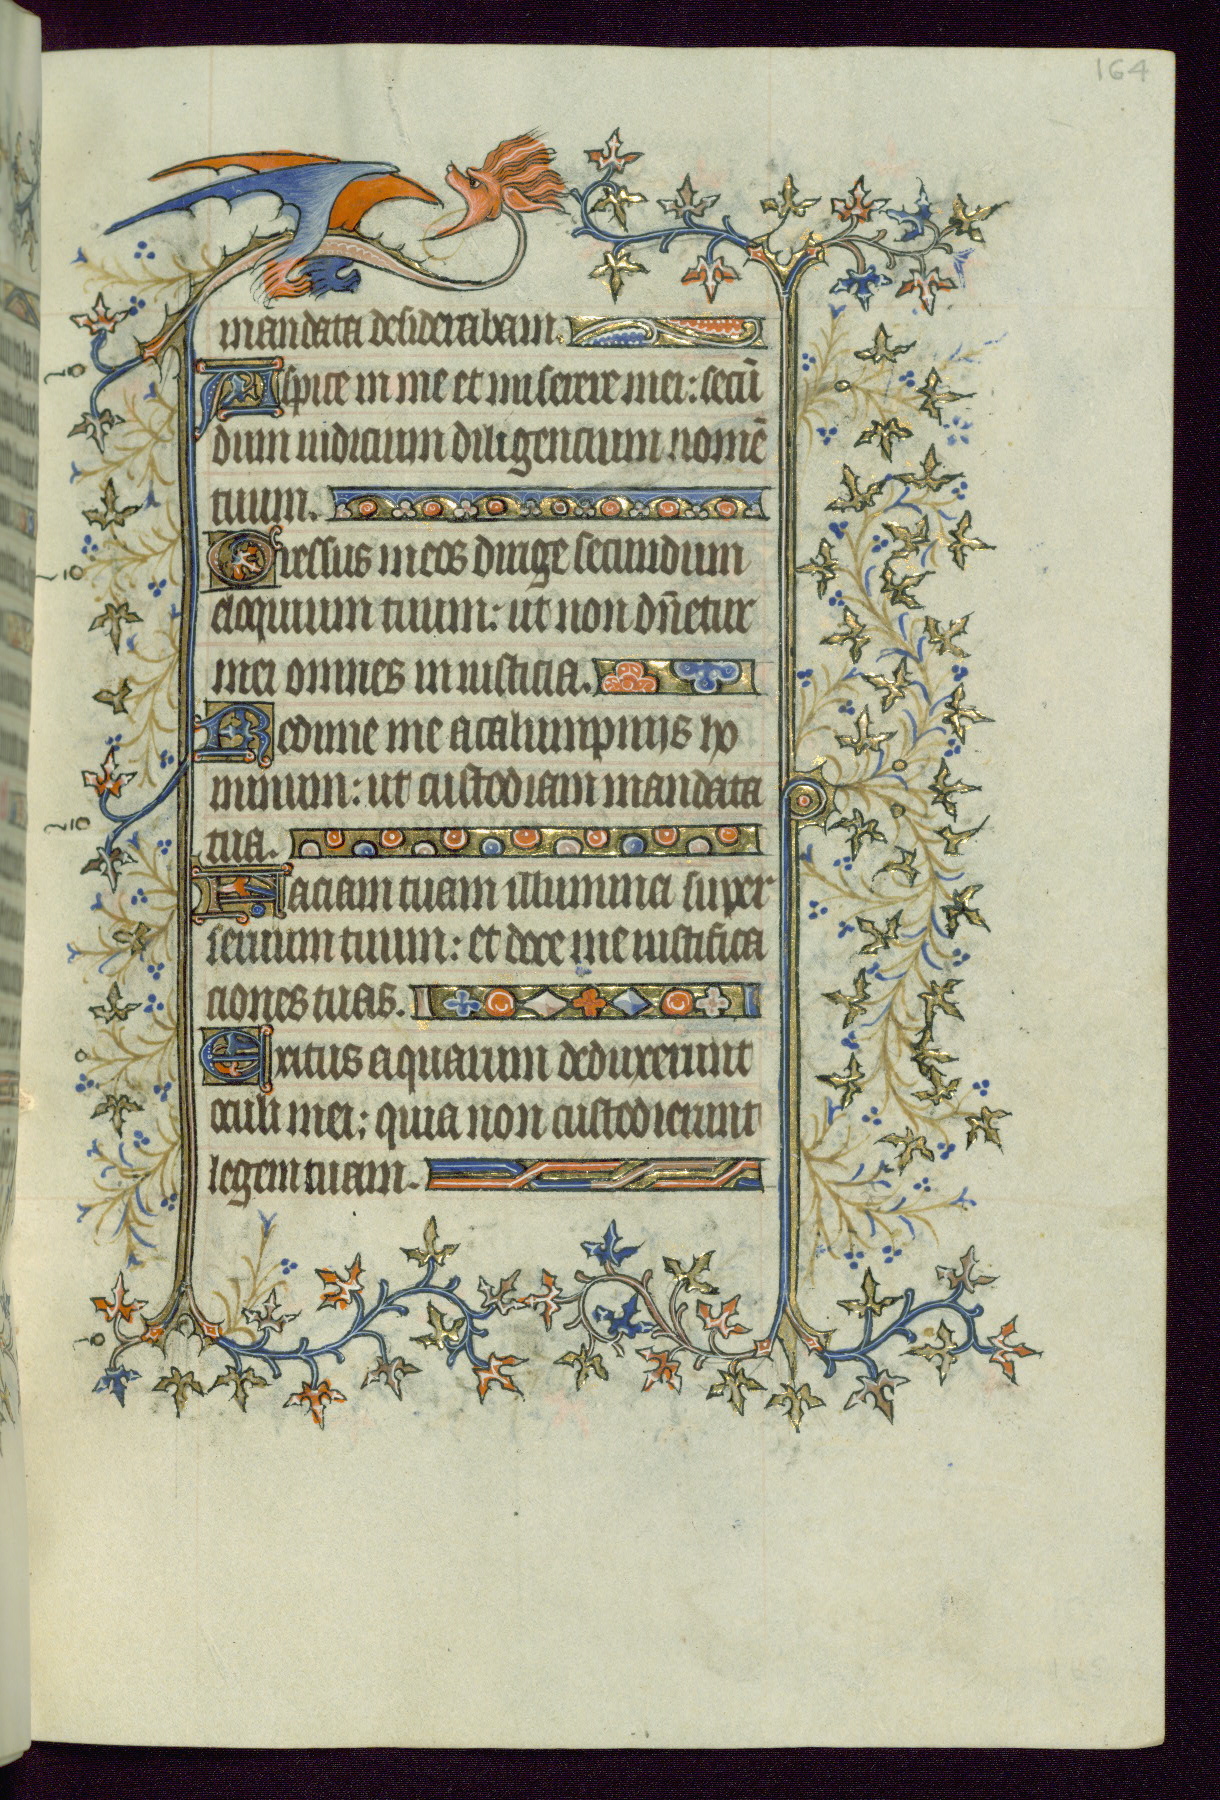 164
mandata desiderabam.
Aspice in me et miserere mei: secū
dum iudicium diligencium nomē
tuum.
Gressus meos dirige secundum
eloquium tuum: ut non dn̄etur
mei omnis iniusticia.
Redime me a calumpnijs ho
minum: ut custodiam mandata
tua.
Faciam tuam illumina super
seruum tuum: et doce me iustifica
ciones tuas.
Exitus aquarum deduxerunt
oculi mei: quia non custodierunt
legem tuam.